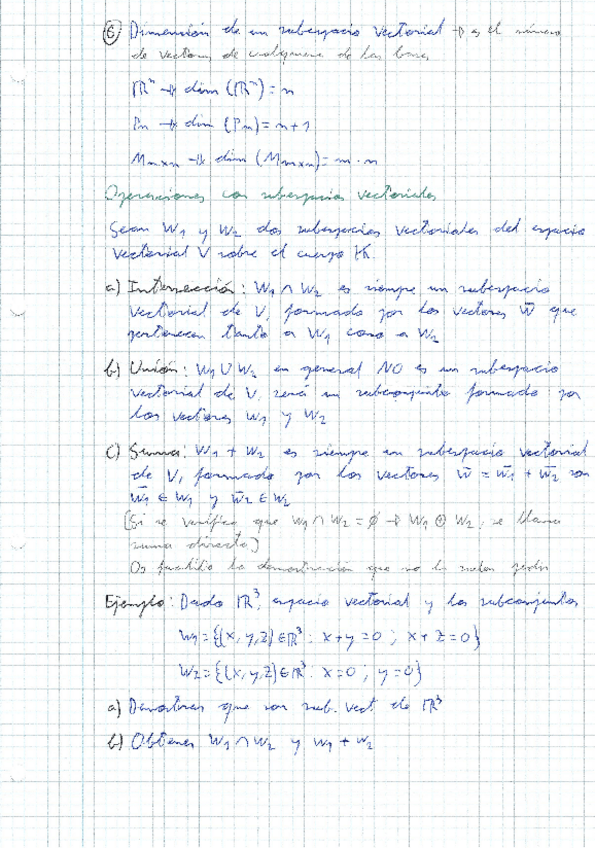 ⑥ Dimensión de un subespacio vectorial → es el número
de vectores de cualquiera de las bases
ℝⁿ → dim (ℝⁿ) = n
Pn → dim (Pn) = n+1
Mmxn → dim (Mmxn) = m · n
Operaciones con subespacios vectoriales
Sean W1 y W2 dos subespacios vectoriales del espacio
vectorial V sobre el cuerpo K.
a) Intersección: W1 ∩ W2 es siempre un subespacio
vectorial de V, formado por los vectores w̄ que
pertenecen tanto a W1 como a W2
b) Unión: W1 ∪ W2 en general NO es un subespacio
vectorial de V. será un subconjunto formado por
los vectores W1 y W2
c) Suma: W1 + W2 es siempre un subespacio vectorial
de V, formado por los vectores w̄ = w̄1 + w̄2 con
w̄1 ∈ W1 y w̄2 ∈ W2
(Si se verifica que W1 ∩ W2 = ∅ → W1 ⊕ W2, se llama
suma directa)
Os facilito la demostración que no la suelen pedir
Ejemplo: Dado ℝ³, espacio vectorial y los subconjuntos
W1 = {(x, y, z) ∈ ℝ³ : x+y=0 ; x+z=0}
W2 = {(x, y, z) ∈ ℝ³ : x=0 ; y=0}
a) Demostrar que son sub. vect. de ℝ³
b) Obtener W1 ∩ W2 y W1 + W2